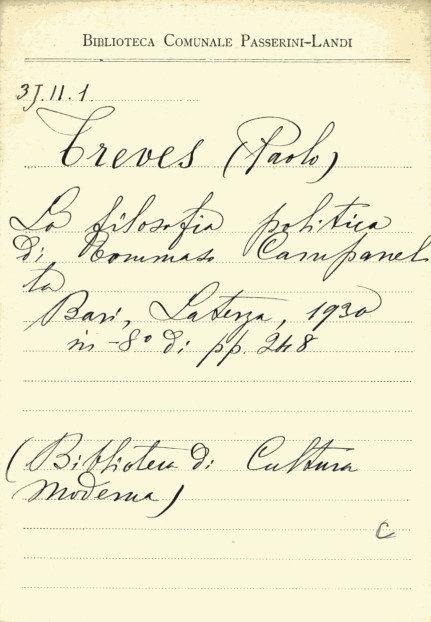 BIBLIOTECA COMUNALE PASSERINI-LANDI
3J.II.1.
Treves (Paolo)
La filosofia politica
di Tommaso Campanel
la
Bari, Laterza, 1930
in-8° di pp. 248
(Biblioteca di Cultura
Moderna)
C